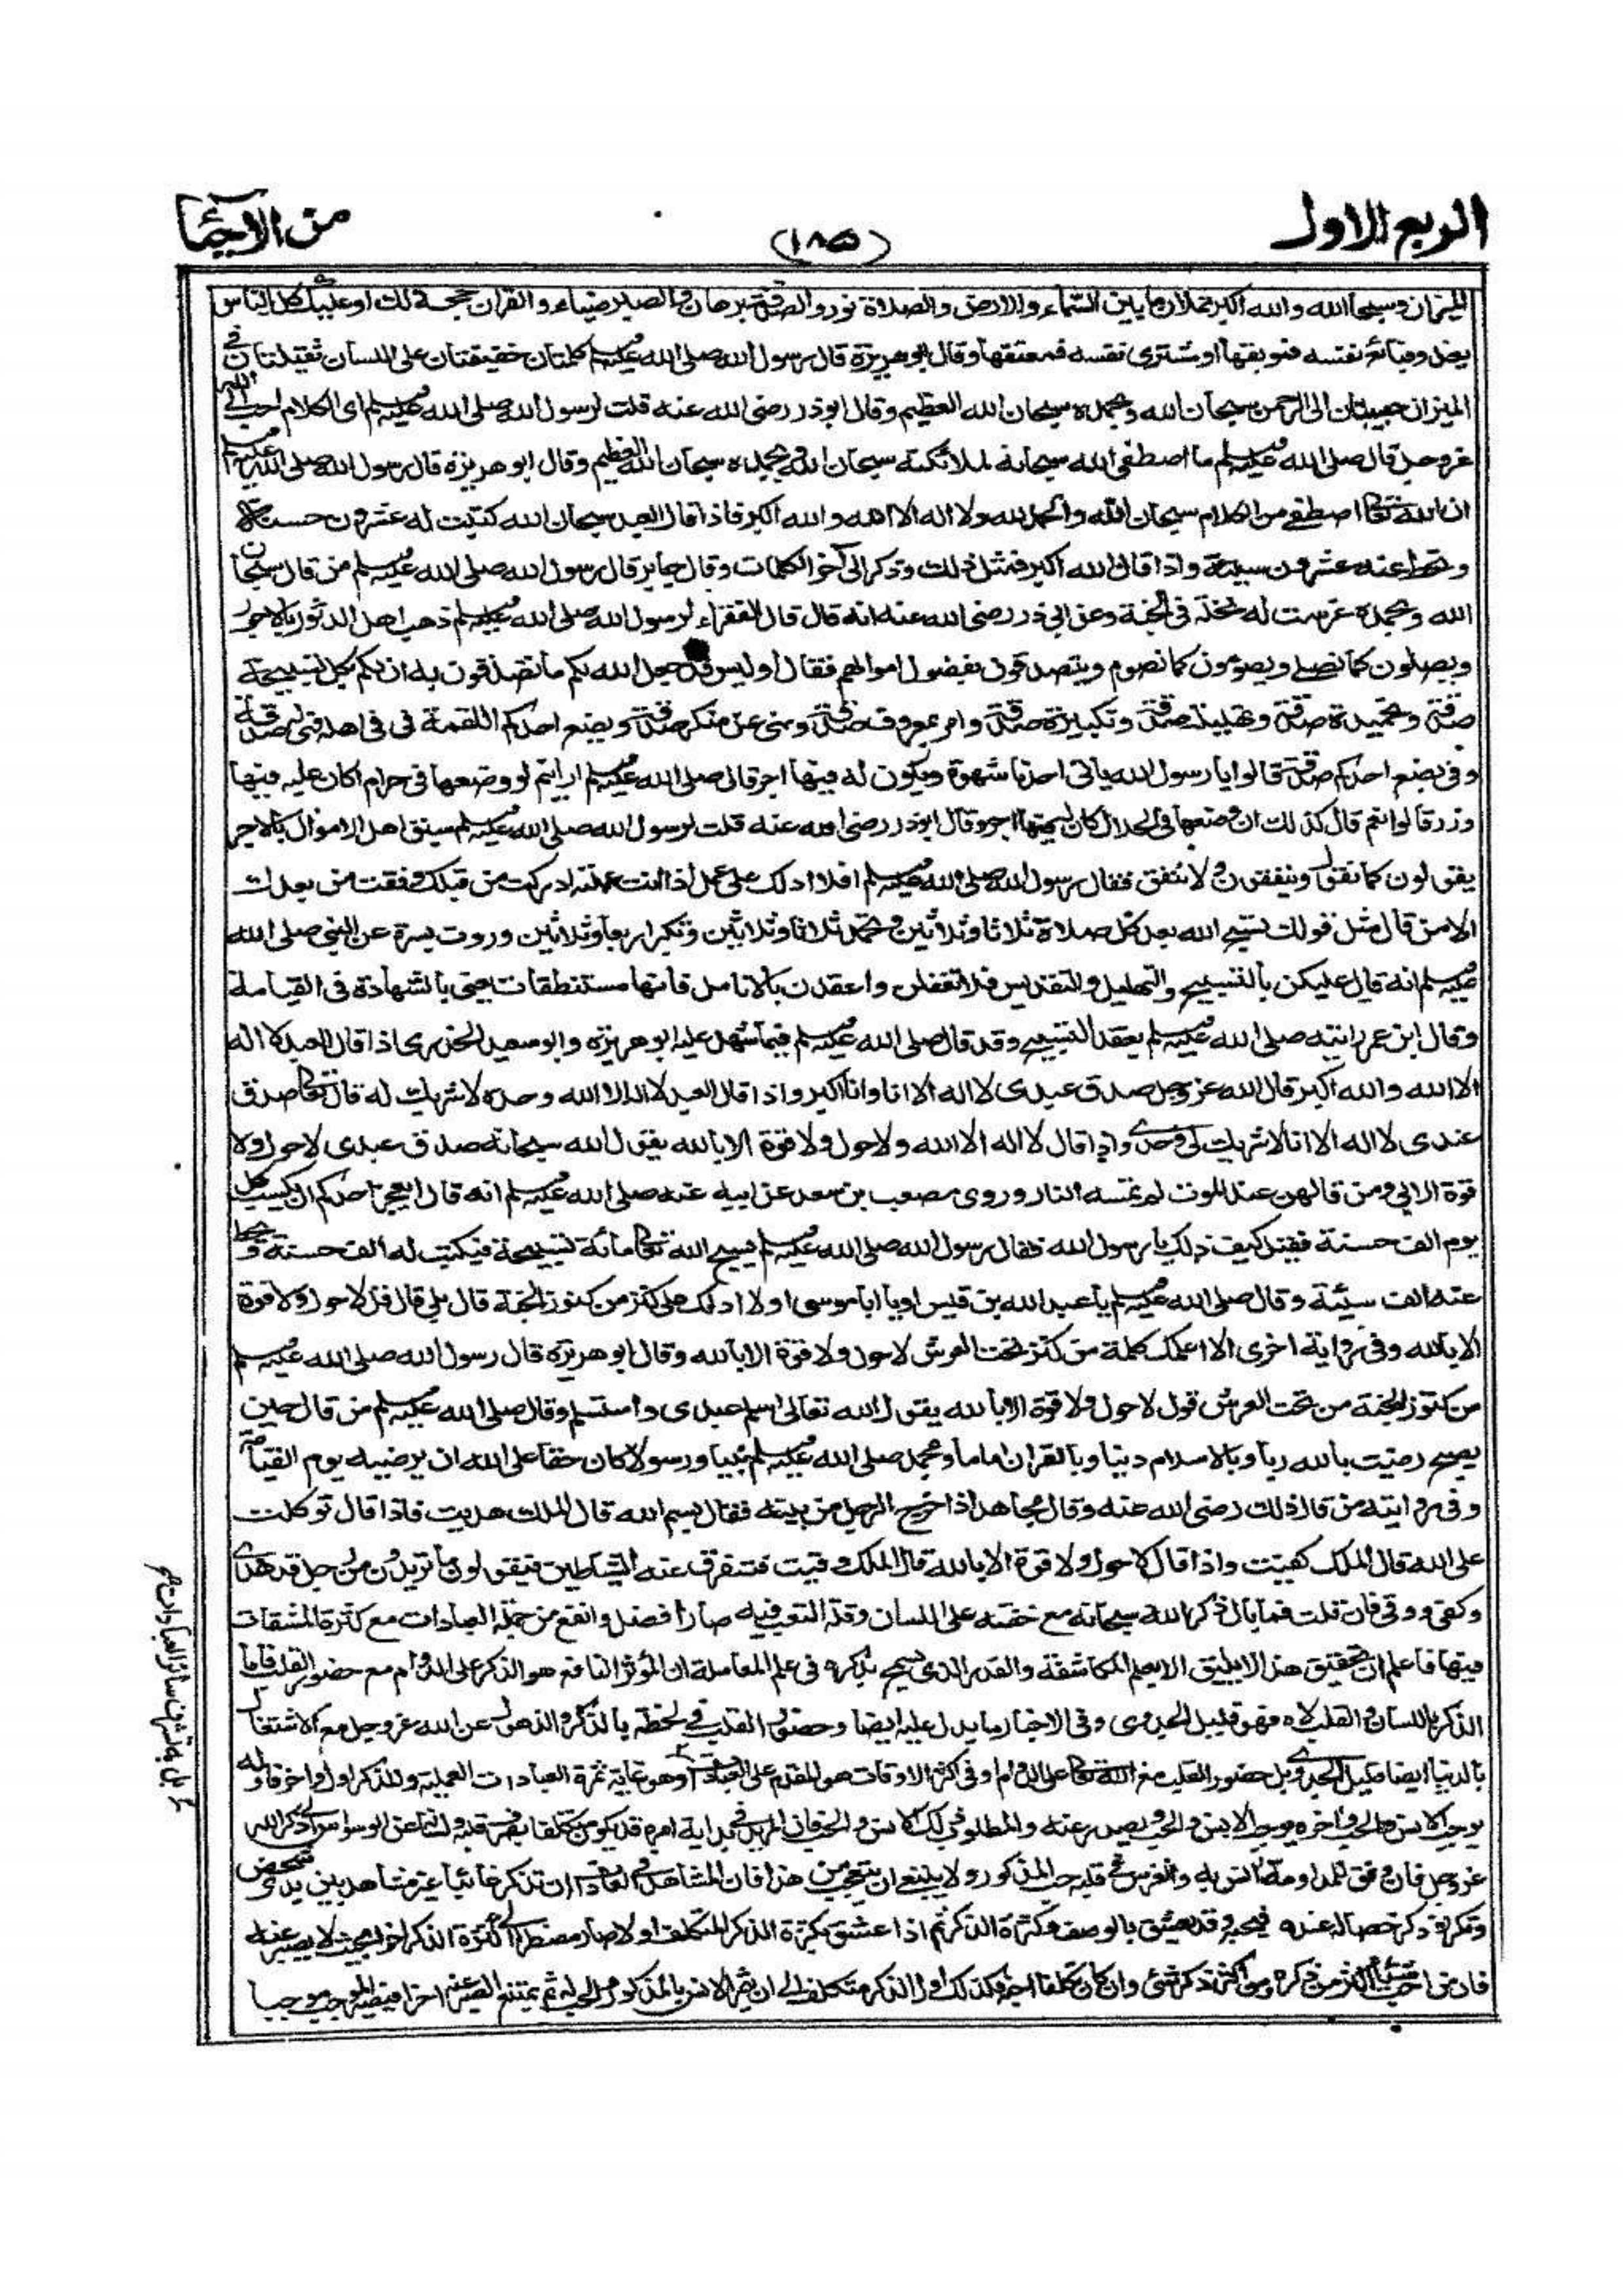 الربع الاول
(١٨٥)
من الاحياء
الميزان وسبحان الله والله اكبر تملان ما بين السماء والارض والصلاة نور والصدقة برهان والصبر ضياء والقران حجة لك او عليك كل الناس
يغدو فبائع نفسه فموبقها او مشتري نفسه فمعتقها وقال ابو هريرة قال رسول الله صلى الله عليه وسلم كلمتان خفيفتان على اللسان ثقيلتان في
الميزان حبيبتان الى الرحمن سبحان الله وبحمده سبحان الله العظيم وقال ابوذر رضى الله عنه قلت لرسول الله صلى الله عليه وسلم اى الكلام احب الى الله
عز وجل قال صلى الله عليه وسلم ما اصطفى الله سبحانه لملائكته سبحان الله وبحمده سبحان الله العظيم وقال ابو هريرة قال رسول الله صلى الله عليه وسلم
ان الله تعالى اصطفى من الكلام سبحان الله والحمد لله ولا اله الا الله والله اكبر فاذا قال العبد سبحان الله كتبت له عشرون حسنة
وتحط عنه عشرون سيئة واذا قال الله اكبر فمثل ذلك وذكر الى آخر الكلمات وقال جابر قال رسول الله صلى الله عليه وسلم من قال سبحان
الله وبحمده غرست له نخلة فى الجنة وعن ابي ذر رضى الله عنه انه قال قال الفقراء لرسول الله صلى الله عليه وسلم ذهب اهل الدثور بالاجور
ويصلون كما نصلى ويصومون كما نصوم ويتصدقون بفضول اموالهم فقال اوليس قد جعل الله لكم ما تصدقون به ان لكم بكل تسبيحة
صدقة وتحميدة صدقة وتهليلة صدقة وتكبيرة صدقة وامر بمعروف صدقة ونهى عن منكر صدقة ويضع احدكم اللقمة فى فى اهله فهى له صدقة
وفى بضع احدكم صدقة قالوا يا رسول الله ياتى احدنا شهوة ويكون له فيها اجر قال صلى الله عليه وسلم ارايتم لو وضعها فى حرام اكان عليه فيها
وزر قالوا نعم قال كذلك ان وضعها فى الحلال كان له فيها اجر وقال ابوذر رضى الله عنه قلت لرسول الله صلى الله عليه وسلم سبق اهل الاموال بالاجر
يقولون كما نقول وينفقون ولا ننفق فقال رسول الله صلى الله عليه وسلم افلا ادلك على عمل اذا انت عملته ادركت من قبلك وفقت من بعدك
الا من قال مثل قولك تسبح الله بعد كل صلاة ثلاثا وثلاثين وتحمد ثلاثا وثلاثين وتكبر اربعا وثلاثين وروت بسرة عن النبى صلى الله
عليه وسلم انه قال عليكن بالتسبيح والتهليل والتقديس فلا تغفلن واعقدن بالانامل فانها مستنطقات يعنى بالشهادة فى القيامة
وقال ابن عمر رايته صلى الله عليه وسلم يعقد التسبيح وقد قال صلى الله عليه وسلم فيما شهد عليه ابو هريرة وابو سعيد الخدرى اذا قال العبد لا اله
الا الله والله اكبر قال الله عز وجل صدق عبدى لا اله الا انا وانا اكبر واذا قال العبد لا اله الا الله وحده لا شريك له قال تعالى صدق
عبدى لا اله الا انا لا شريك لى وحدى واذا قال لا اله الا الله ولا حول ولا قوة الا بالله يقول الله سبحانه صدق عبدى لا حول ولا
قوة الا بى ومن قالهن عند الموت لم تمسه النار وروى مصعب بن سعد عن ابيه عنه صلى الله عليه وسلم انه قال ايعجز احدكم ان يكسب كل
يوم الف حسنة فقيل كيف ذلك يا رسول الله فقال رسول الله صلى الله عليه وسلم يسبح الله تعالى مائة تسبيحة فيكتب له الف حسنة ويحط
عنه الف سيئة وقال صلى الله عليه وسلم يا عبد الله بن قيس او يا ابا موسى اولا ادلك على كنز من كنوز الجنة قال بلى قال قل لا حول ولا قوة
الا بالله وفى رواية اخرى الا اعلمك كلمة من كنز تحت العرش لا حول ولا قوة الا بالله وقال ابو هريرة قال رسول الله صلى الله عليه وسلم
من كنوز الجنة من تحت العرش قول لا حول ولا قوة الا بالله يقول الله تعالى اسلم عبدى واستسلم وقال صلى الله عليه وسلم من قال حين
يصبح رضيت بالله ربا وبالاسلام دينا وبالقران اماما وبمحمد صلى الله عليه وسلم نبيا ورسولا كان حقا على الله ان يرضيه يوم القيامة
وفى رواية من قال ذلك رضى الله عنه وقال مجاهد اذا خرج الرجل من بيته فقال بسم الله قال الملك هديت فاذا قال توكلت
على الله قال الملك كفيت واذا قال لا حول ولا قوة الا بالله قال الملك وقيت فتتفرق عنه الشياطين فيقولون ما تريدون من رجل قد هدى
وكفى ووقى فان قلت فما بال ذكر الله سبحانه مع خفته على اللسان وقلة التعب فيه صار افضل وانفع من جملة العبادات مع كثرة المشقات
فيها فاعلم ان تحقيق هذا لا يليق الا بعلم المكاشفة والقدر الذى يسمح بذكره فى علم المعاملة ان المؤثر النافع هو الذكر على الدوام مع حضور القلب فاما
الذكر باللسان والقلب لاه فهو قليل الجدوى وفى الاخبار ما يدل عليه ايضا وحضور القلب فى لحظة بالذكر والذهول عن الله عز وجل مع الاشتغال
بالدنيا ايضا قليل الجدوى بل حضور القلب مع الله تعالى على الدوام او فى اكثر الاوقات هو المقدم على العبادات وهو غاية ثمرة العبادات العملية وللذكر اول واخر فاوله
يوجب الانس والحب واخره يوجبه الانس والحب ويصدر عنه والمطلوب ذلك الانس والحب فان المريد فى بداية امره قد يكون متكلفا بصرف قلبه ولسانه عن الوسواس الى ذكر الله
عز وجل فان وفق للمداومة انس به وانغرس فى قلبه حب المذكور ولا ينبغى ان يتعجب من هذا فان المشاهد فى العادات ان تذكر غائبا غير مشاهد بين يدى شخص
وتكرر ذكر خصاله عنده فيحبه وقد يعشق بالوصف وكثرة الذكر ثم اذا عشق بكثرة الذكر المتكلف اولا صار مضطرا الى كثرة الذكر اخرا بحيث لا يصبر عنه
فان من احب شيئا اكثر من ذكره ومن اكثر ذكر شئ وان كان تكلفا احبه فكذلك اول الذكر متكلف الى ان يثمر الانس بالمذكور والحب له ثم يمتنع الصبر عنه اخرا فيصير الموجب موجبا